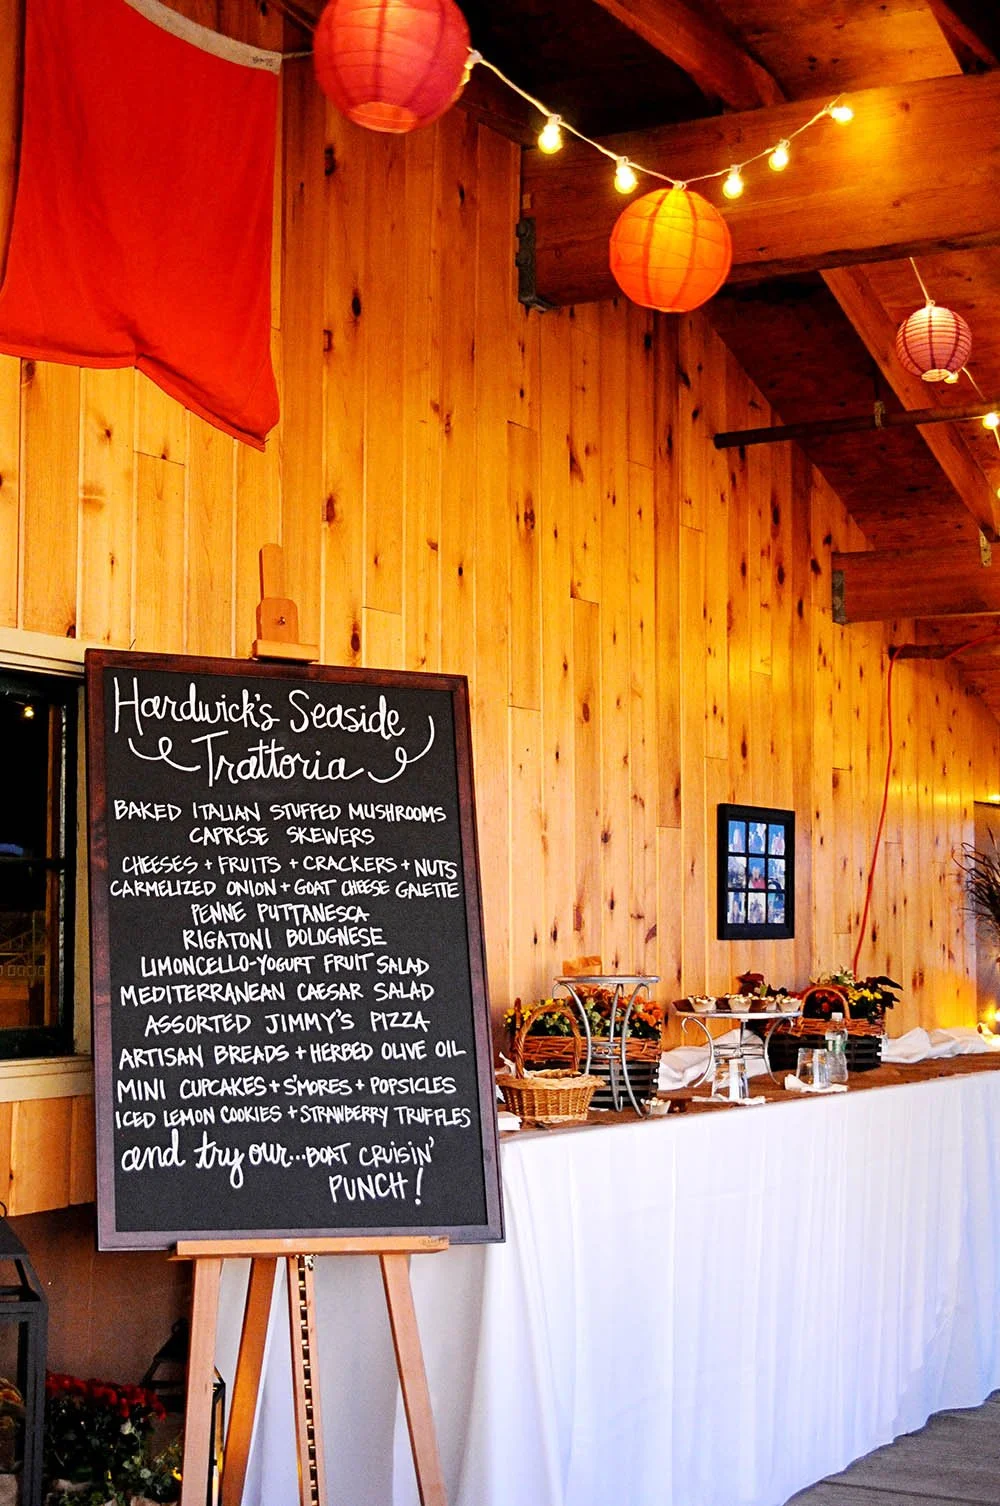 Hardwick's Seaside
Trattoria
BAKED ITALIAN STUFFED MUSHROOMS
CAPRESE SKEWERS
CHEESES + FRUITS + CRACKERS + NUTS
CARMELIZED ONION + GOAT CHEESE GALETTE
PENNE PUTTANESCA
RIGATONI BOLOGNESE
LIMONCELLO-YOGURT FRUIT SALAD
MEDITERRANEAN CAESAR SALAD
ASSORTED JIMMY'S PIZZA
ARTISAN BREADS + HERBED OLIVE OIL
MINI CUPCAKES + S'MORES + POPSICLES
ICED LEMON COOKIES + STRAWBERRY TRUFFLES
and try our...BOAT CRUISIN'
PUNCH!